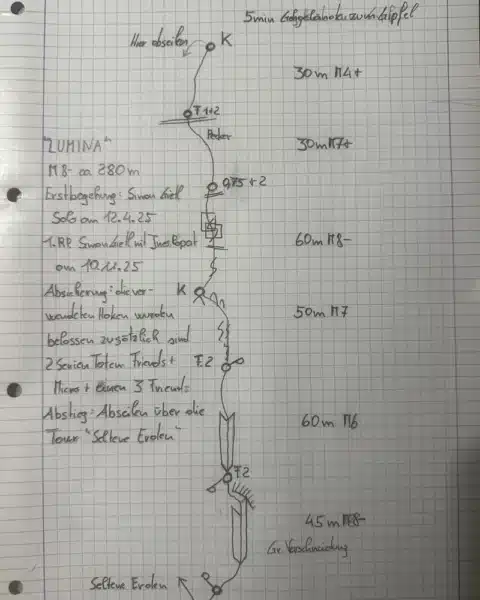 5min Gehgelände zum Gipfel
Hier abseilen
K
30m M4+
F 1+2
Pecker
30m M7+
"LUMINA"
M8- ca 280m
Erstbegehung: Simon Gietl
Solo am 12.4.25
1. RP Simon Gietl mit
am 10.11.25
0,75+2
60m M8-
Absicherung: die ver-
wendeten Haken wurden
belassen zusätzlich sind
2 Serien Totem Friends +
Micros + einen 3 Friend
Abstieg: Abseilen über die
Tour "Seltene Erden"
K
50m M7
F.2
60m M6
F.2
45m M8-
Gr. Verschneidung
Seltene Erden